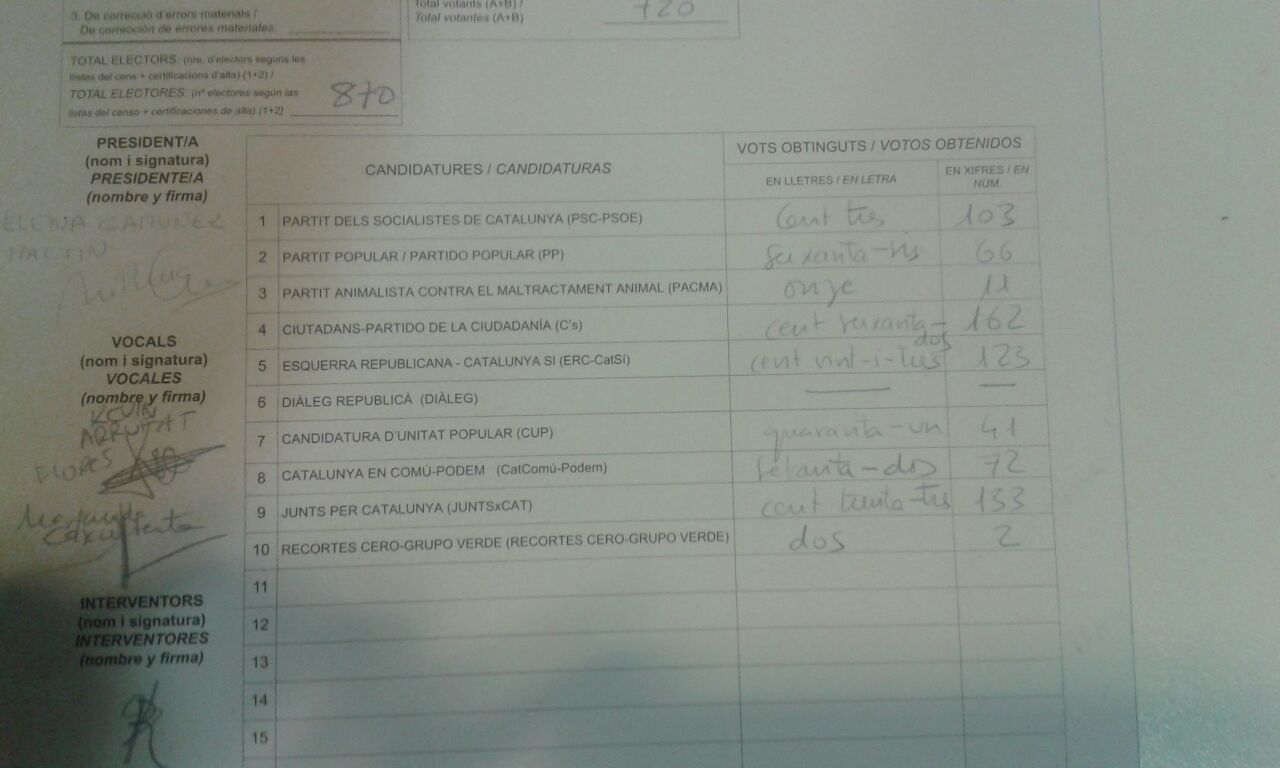 3. De correcció d'errors materials /
De corrección de errores materiales:
Total votants (A+B) /
Total votantes (A+B)
720
TOTAL ELECTORS: (nre. d'electors segons les
llistes del cens + certificacions d'alta) (1+2) /
TOTAL ELECTORES: (nº electores según las
listas del censo + certificaciones de alta) (1+2)
870
PRESIDENT/A
(nom i signatura)
PRESIDENTE/A
(nombre y firma)
ELENA
MARTIN
VOCALS
(nom i signatura)
VOCALES
(nombre y firma)
KEVIN
FLORES
INTERVENTORS
(nom i signatura)
INTERVENTORES
(nombre y firma)
CANDIDATURES / CANDIDATURAS
VOTS OBTINGUTS / VOTOS OBTENIDOS
EN LLETRES / EN LETRA
EN XIFRES / EN NÚM.
1 PARTIT DELS SOCIALISTES DE CATALUNYA (PSC-PSOE) Cent tres 103
2 PARTIT POPULAR / PARTIDO POPULAR (PP) seixanta-sis 66
3 PARTIT ANIMALISTA CONTRA EL MALTRACTAMENT ANIMAL (PACMA) onze 11
4 CIUTADANS-PARTIDO DE LA CIUDADANÍA (C's) cent seixanta-dos 162
5 ESQUERRA REPUBLICANA - CATALUNYA SI (ERC-CatSí) cent vint-i-tres 123
6 DIÀLEG REPUBLICÀ (DIÀLEG) — —
7 CANDIDATURA D'UNITAT POPULAR (CUP) quaranta-un 41
8 CATALUNYA EN COMÚ-PODEM (CatComú-Podem) setanta-dos 72
9 JUNTS PER CATALUNYA (JUNTSxCAT) cent trenta-tres 133
10 RECORTES CERO-GRUPO VERDE (RECORTES CERO-GRUPO VERDE) dos 2
11
12
13
14
15